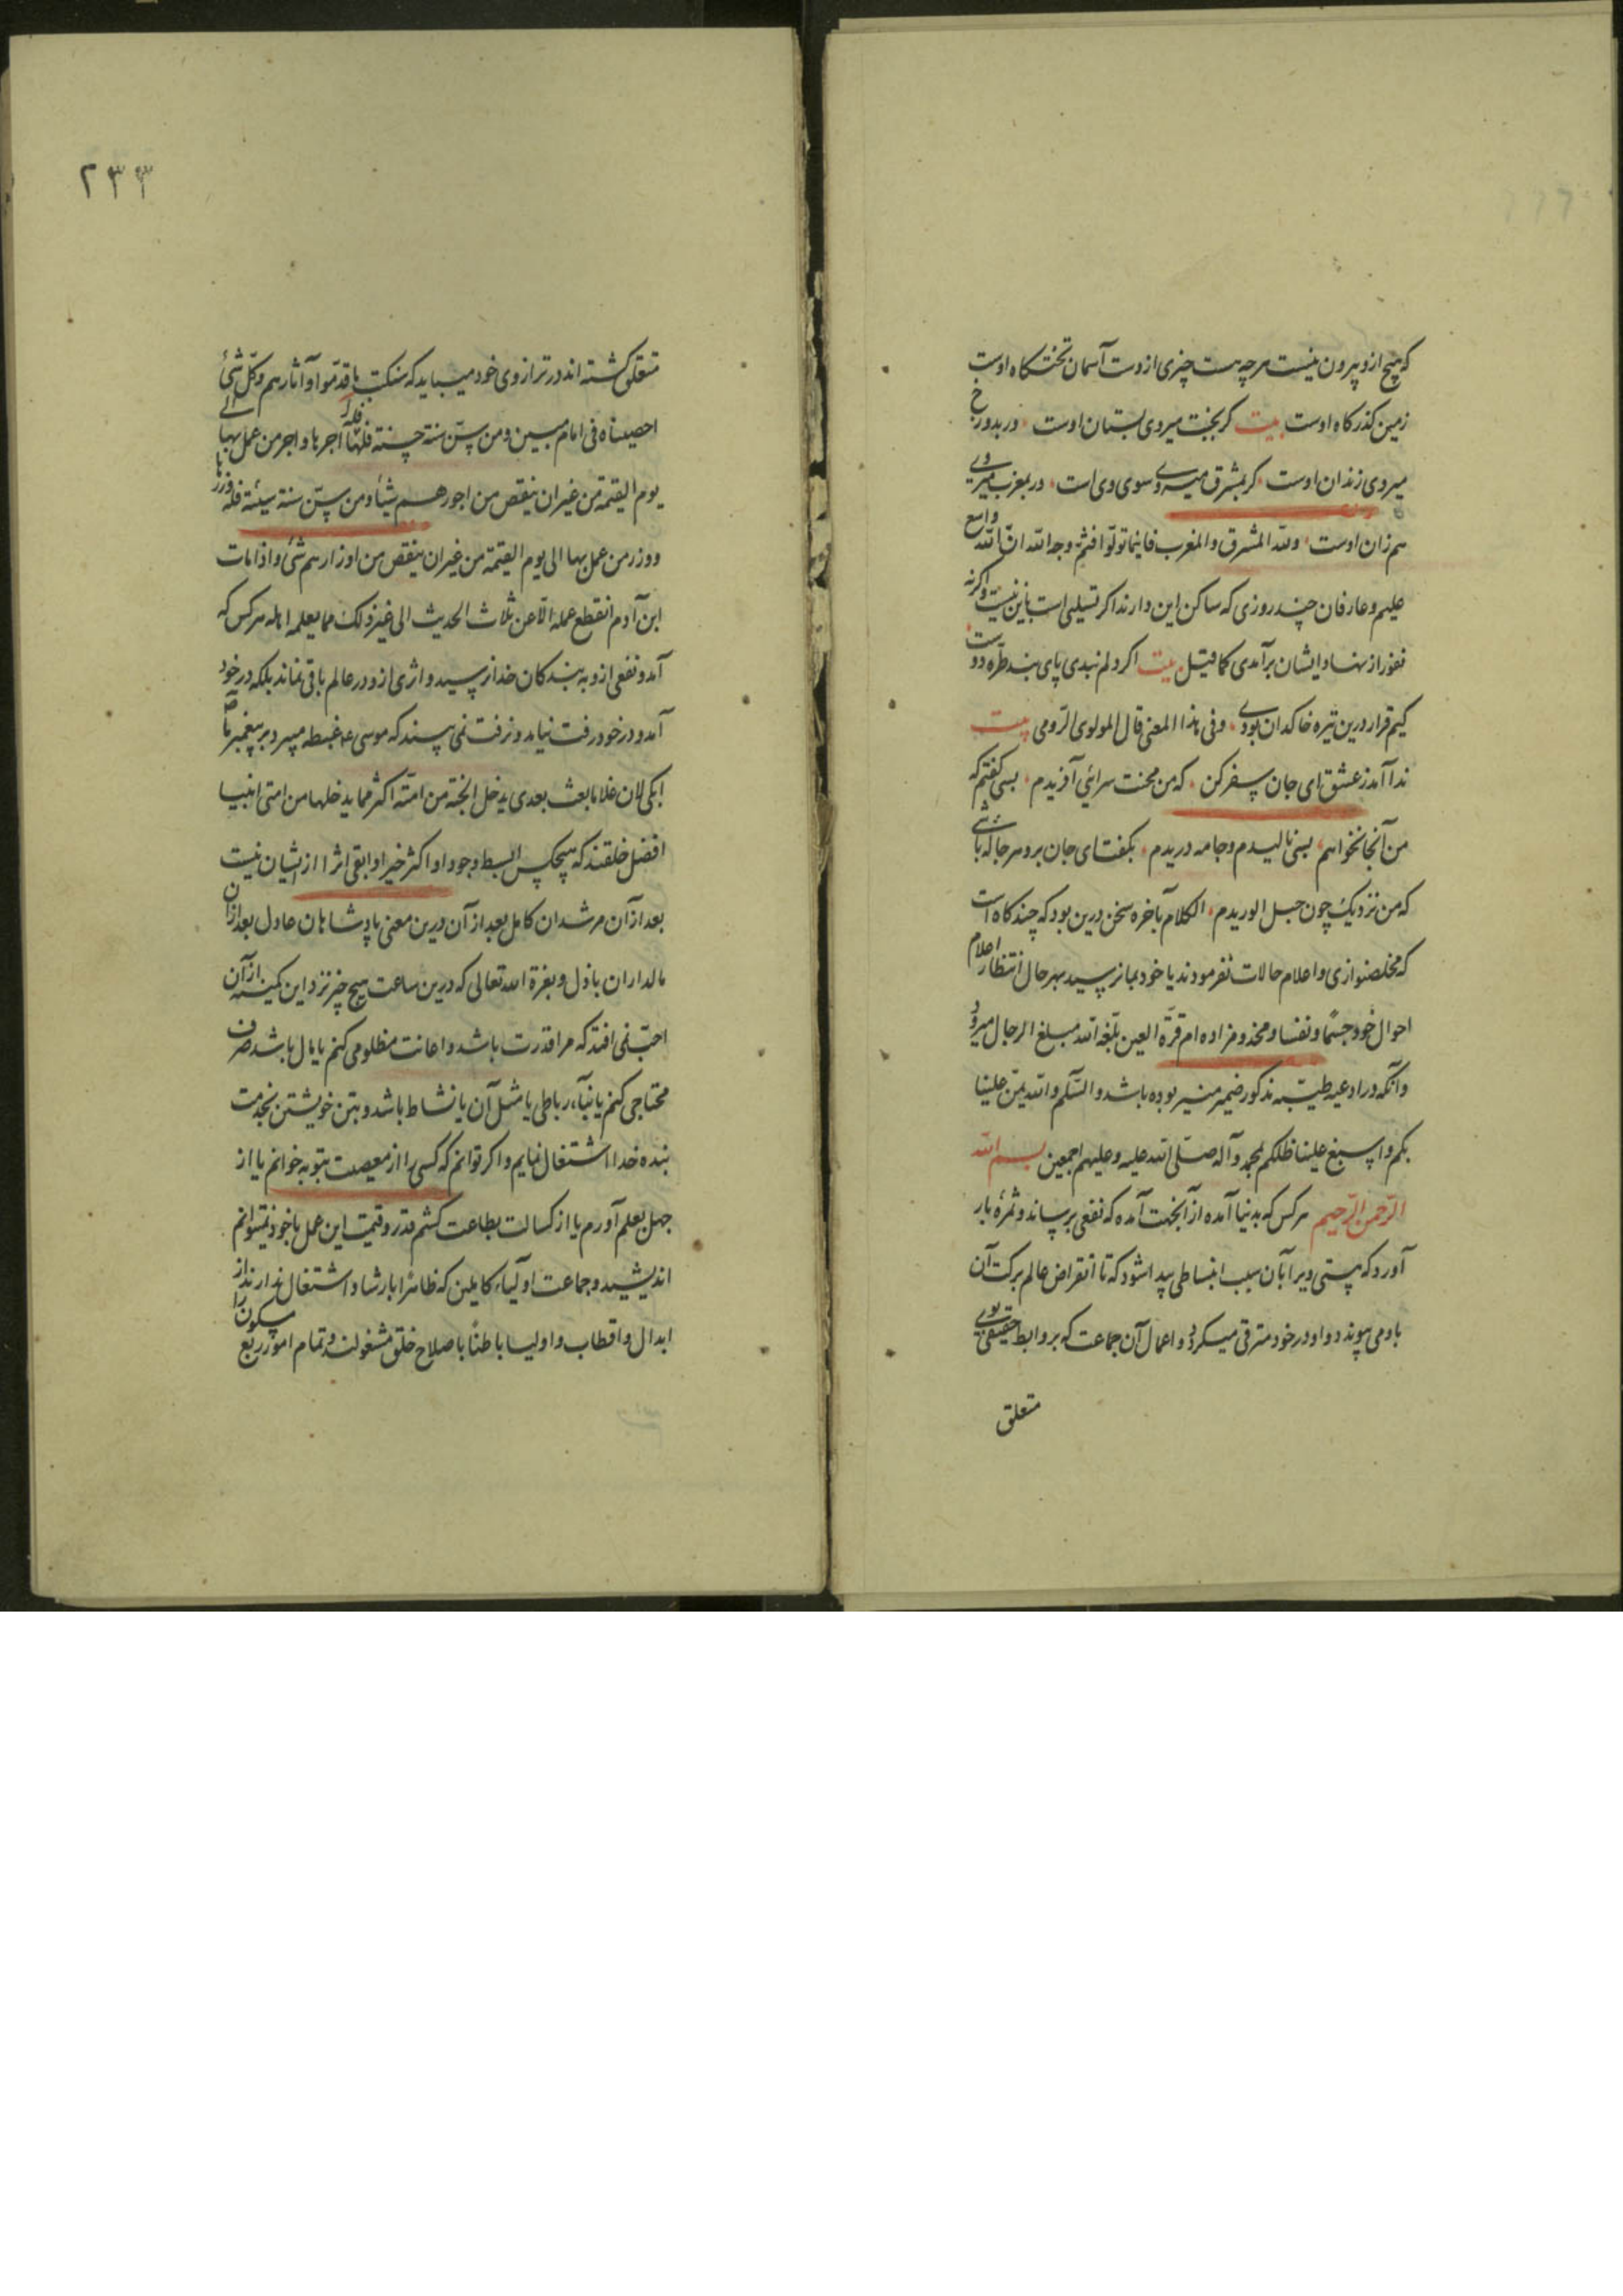 که هیچ ازو بیرون نیست هر چه هست چیزی ازوست آسمان تختگاه اوست
زمین کذرکاه اوست بیت کر بجنت میروی بستان اوست ور بدوزخ
میروی زندان اوست کر بمشرق میروی سوی وی است ور بمغرب میروی
هم زان اوست ولله المشرق والمغرب فاینما تولّوا فثمّ وجه الله انّ الله واسع
علیم و عارفان چند روزی که ساکن این دارند اکر تسلی است باین نیت و اکرنه
نفور از نهاد ایشان برآمدی کما قیل بیت اکر دلم نبدی پای بند طرّه دوست
کیم قرار درین تیره خاکدان بودی وفی هذا المعنی قال المولوی الرّومی بیت
ندا آمد ز عشق ای جان سفر کن که من محنت سرائی آفریدم بسی کفتم که
من آنجا نخواهم بسی نالیدم و جامه دریدم بکفت ای جان برو هر جا که باشی
که من نزدیک چون حبل الوریدم الکلام بآخره سخن درین بود که چند کاه است
که مخلصنوازی و اعلام حالات نفرمودند یا خود بما نرسید بهر حال انتظار اعلام
احوال خود جسمًا و نفسا و مخدومزاده ام قرّة العین بلّغه الله مبلغ الرجال میرود
و آنکه در ادعیه طیّبه مذکور ضمیر منیر بوده باشد والسّلم والله یمنّ علینا
بکم و یسبغ علینا ظلکم بمحمد وآله صلّی الله علیه وعلیهم اجمعین بسم الله
الرّحمن الرّحیم هر کس که بدنیا آمده از آنجهت آمده که نفعی برساند و ثمرهٔ بار
آورد که هستی ویرا بآن سبب انبساطی پیدا شود که تا انقراض عالم برکت آن
باو می پیوندد و او در خود مترقی میکردد و اعمال آن جماعت که بروابط حقیقی بوی
متعلق
۲۳۳
متعلق کشته اند در ترازوی خود میباید که سنکتب ما قدّموا و آثارهم وکلّ شئ
احصیناه فی امام مبین و من سنّ سنة حسنة فلها فله اجرها و اجر من عمل بها الی
یوم القیمة من غیر ان ینقص من اجورهم شیئا و من سنّ سنة سیئة فله وزرها
ووزر من عمل بها الی یوم القیمة من غیر ان ینقص من اوزارهم شئ و اذا مات
ابن آدم انقطع عمله الّا عن ثلاث الحدیث الی غیر ذلک مما یعلمه اهله هر کس که
آمد و نفعی ازو به بندکان خدا نرسید و اثری ازو در عالم باقی نماند بلکه در خود
آمد و در خود رفت نیامد و نرفت نمی بینند که موسی ع غبطه میبرد بر پیغمبر ما ص
ابکی لان غلاما بعث بعدی یدخل الجنّة من امّته اکثر مما یدخلها من امتی انبیا
افضل خلقند که هیچکس ابسط وجودا و اکثر خیرا و ابقی اثرا از ایشان نیست
بعد از آن مرشدان کامل بعد از آن درین معنی پادشاهان عادل بعد از ان
مالداران باذل و بعزة الله تعالی که درین ساعت هیچ چیز نزد این کمینه از آن
احبّ نمی افتد که مرا قدرت باشد و اعانت مظلومی کنم یا مال باشد صرف
محتاجی کنم یا بناء رباطی یا مثل آن یا نشاط باشد و بتن خویشتن بخدمت
بنده خدا اشتغال نمایم و اکر توانم که کسی را از معصیت بتوبه خوانم یا از
جهل بعلم آورم یا از کسالت بطاعت کشم قدر و قیمت این عمل با خود نمیتوانم
اندیشید و جماعت اولیاء کاملین که ظاهرا بارشاد اشتغال ندارند از
ابدال و اقطاب و اولیا باطنًا باصلاح خلق مشغولند و تمام امور ربع مسکون را